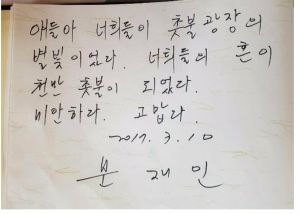 애들아 너희들이 촛불광장의
별빛이었다. 너희들의 혼이
천만 촛불이 되었다.
미안하다. 고맙다.
2017. 3. 10
문 재 인